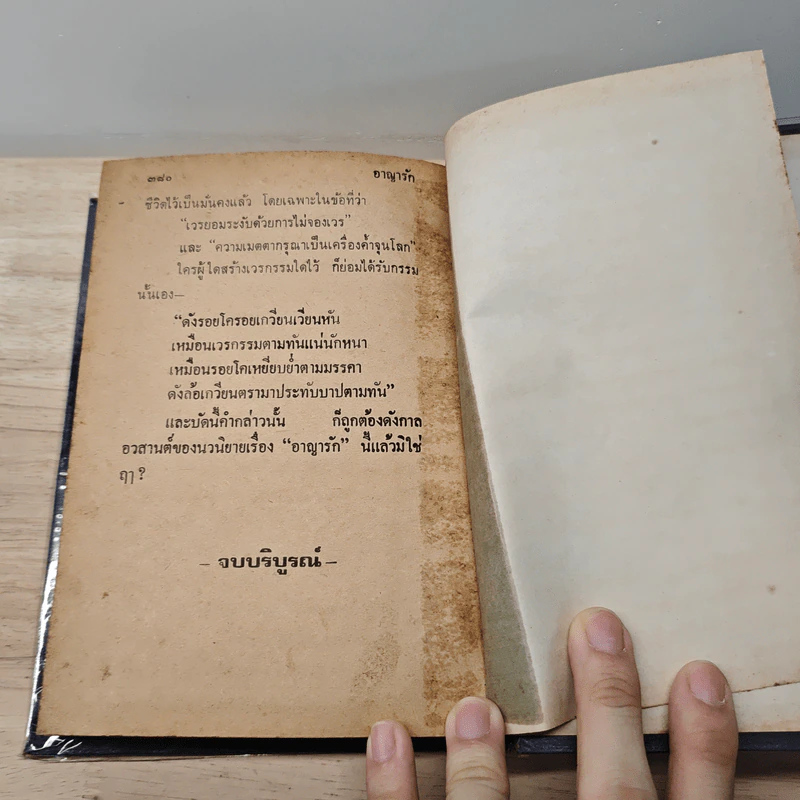 ๓๘๐ อาญารัก
ชีวิตไว้เป็นมั่นคงแล้ว โดยเฉพาะในข้อที่ว่า
“เวรย่อมระงับด้วยการไม่จองเวร”
และ “ความเมตตากรุณาเป็นเครื่องค้ำจุนโลก”
ใครผู้ใดสร้างเวรกรรมใดไว้ ก็ย่อมได้รับกรรม
นั้นเอง—
“ดังรอยโครอยเกวียนเวียนหัน
เหมือนเวรกรรมตามทันแน่นักหนา
เหมือนรอยโคเหยียบย่ำตามมรรคา
ดังล้อเกวียนตรามาประทับบาปตามทัน”
และบัดนี้คำกล่าวนั้น ก็ถูกต้องดังกาล
อวสานต์ของนวนิยายเรื่อง “อาญารัก” นี้แล้วมิใช่
ฤๅ?
– จบบริบูรณ์ –